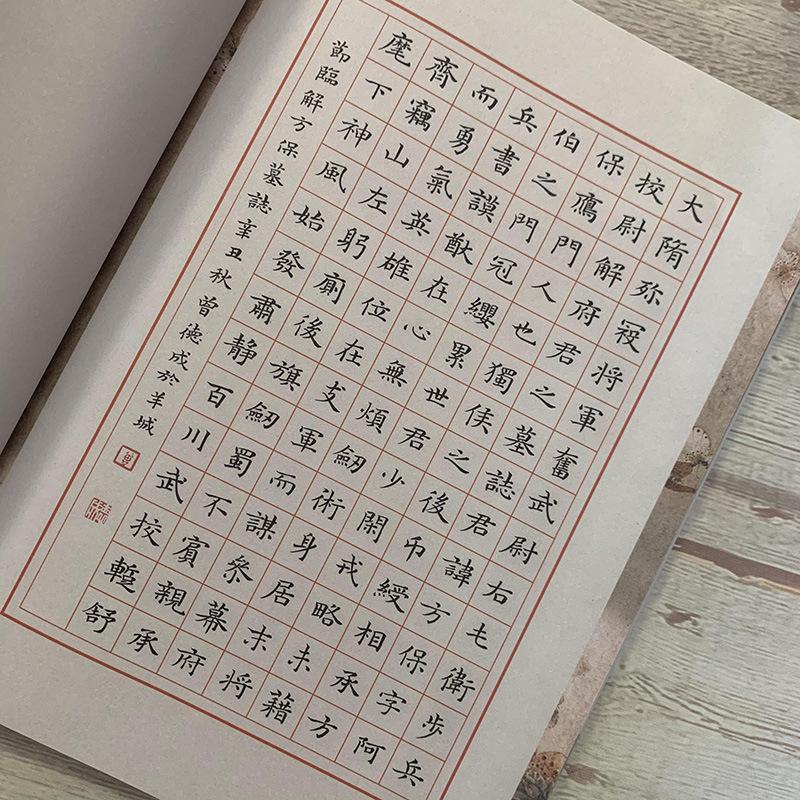 大隋弥寇将軍奮武尉右屯衛步兵
校尉解府君之墓誌君諱方保字阿
保鷹門人也獨侯之後币綬相承方
伯之門冠纓累世君少閑戎略未藉
兵書謨猷在心無煩劒術身居末将
而勇氣英雄位在支軍而謀叅幕府
齊竊山左躬廁後旗劒蜀不賓親承
麾下神風始發肅靜百川武校蹔舒
節臨解方保墓誌辛丑秋曾德成於羊城
曾